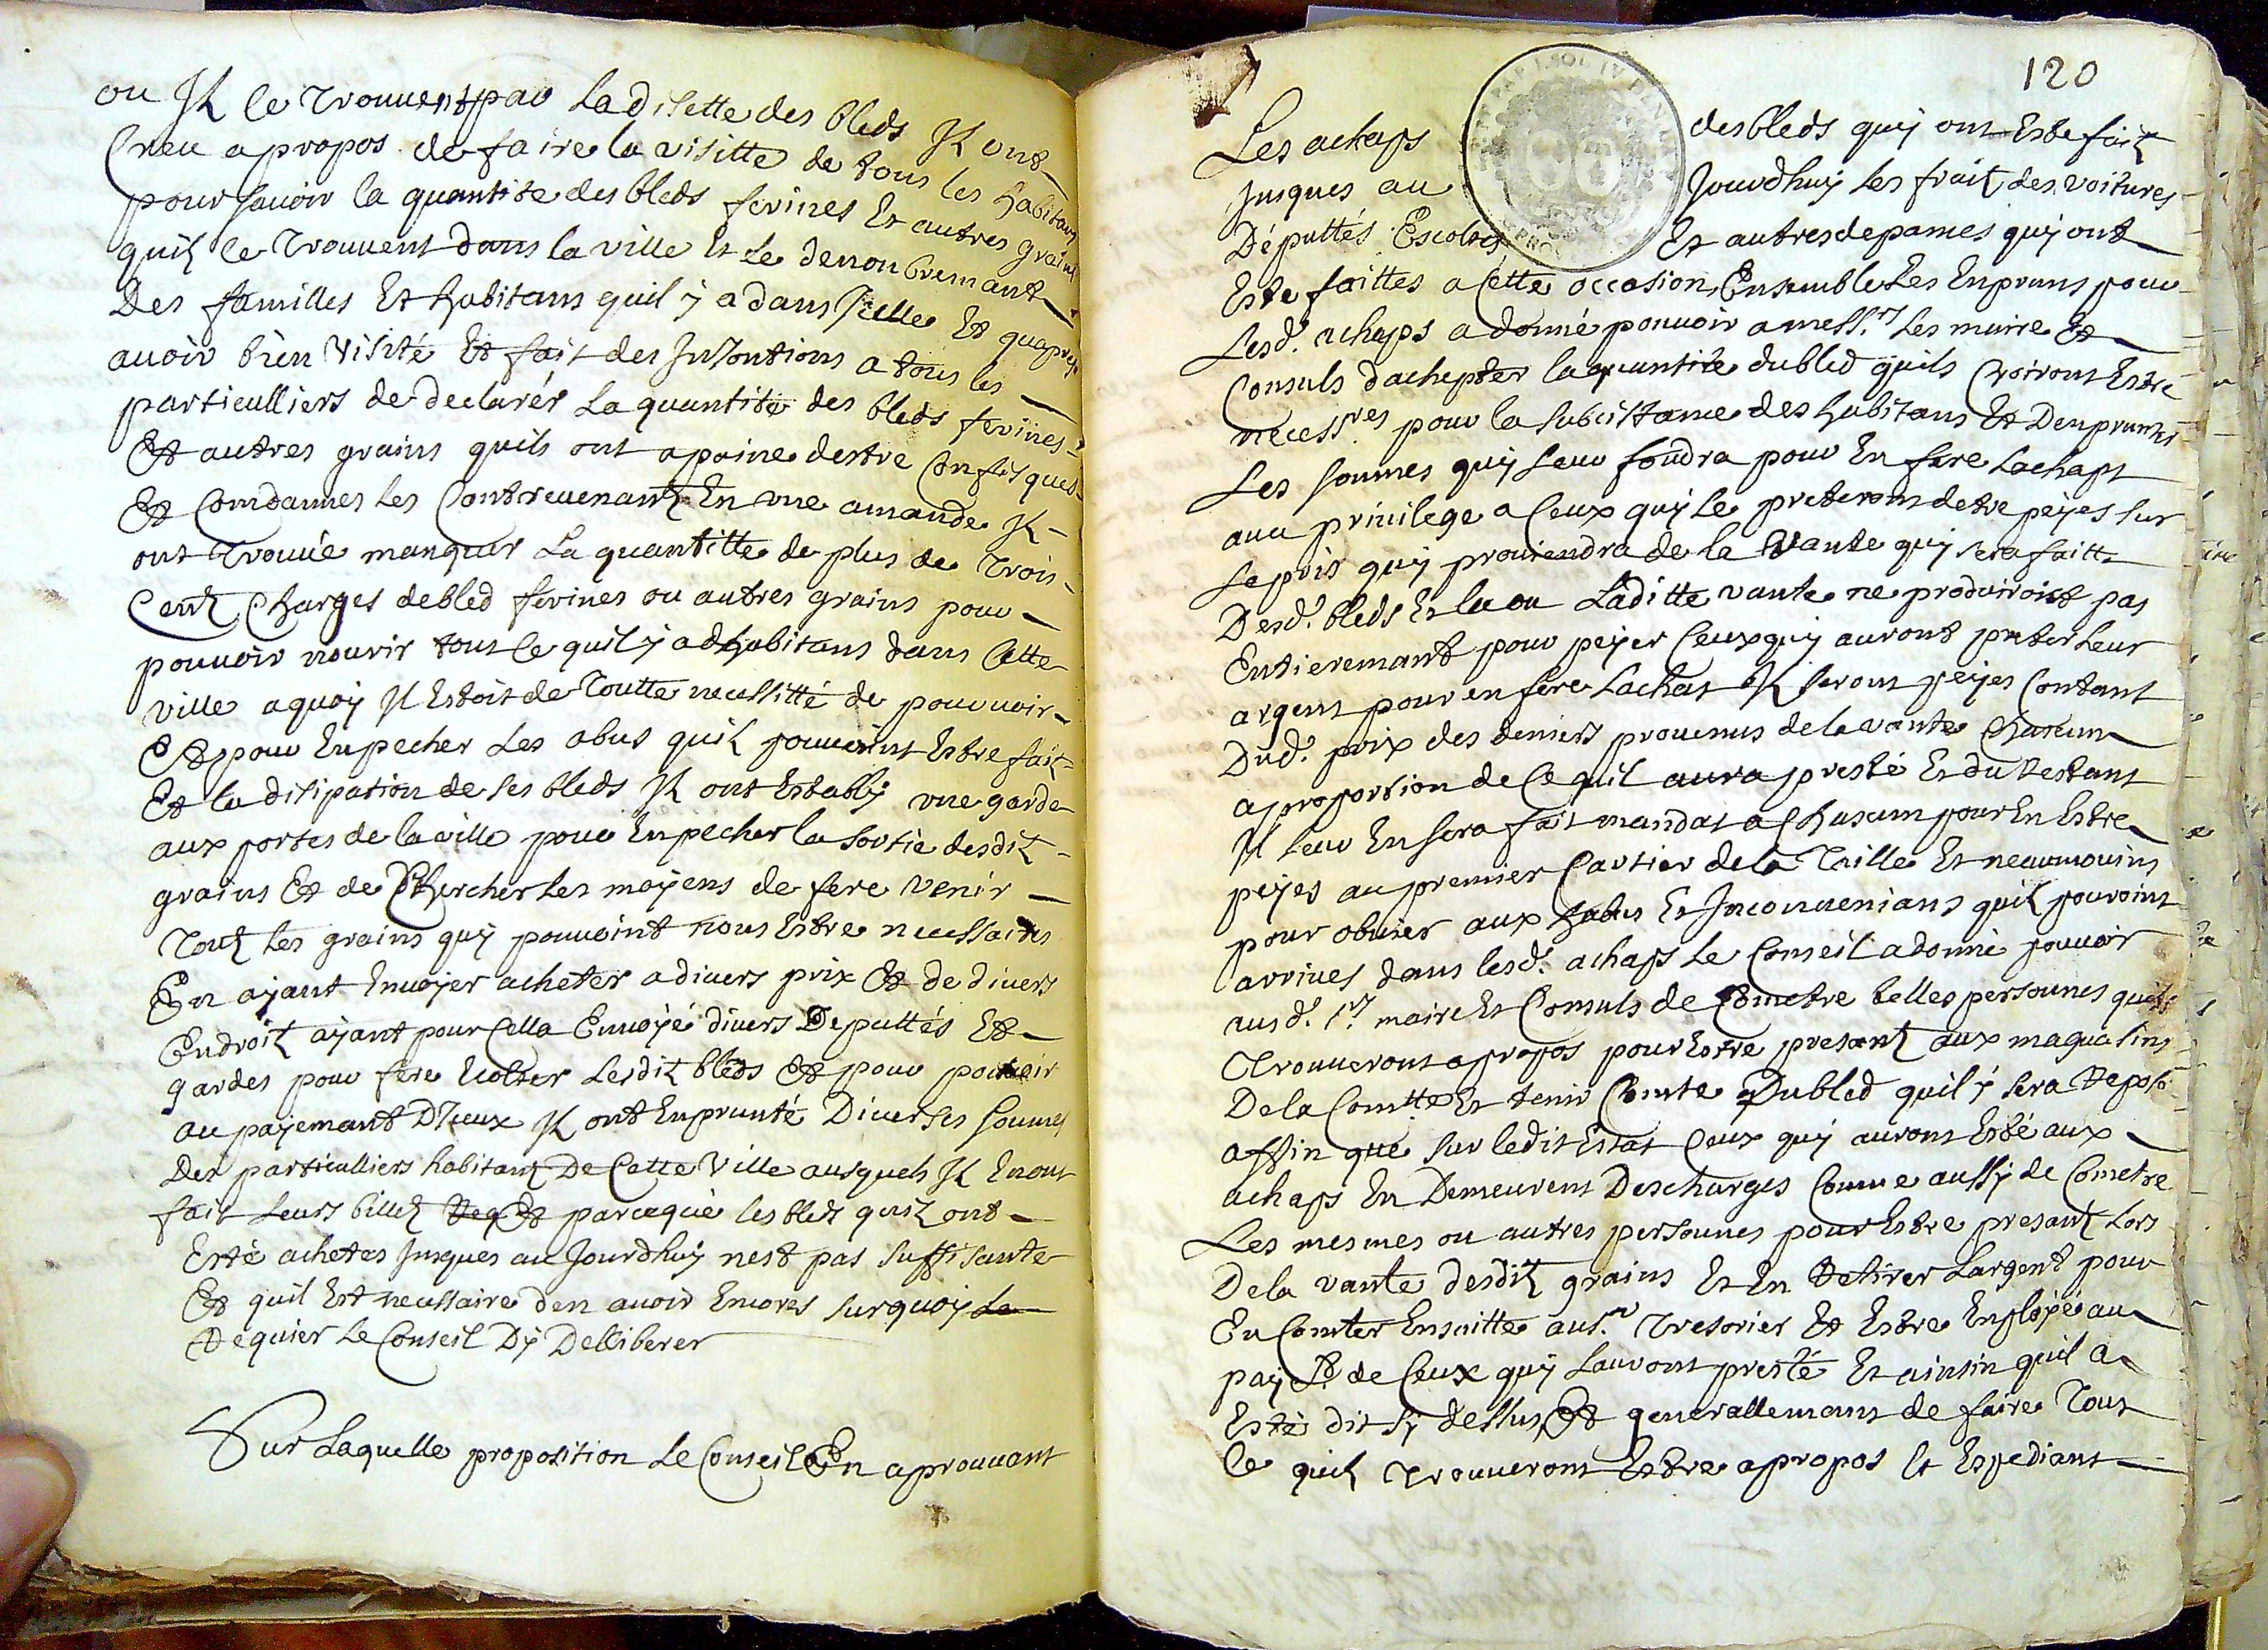 ou Jlz se trouuent par La disette des bleds Jlz ont
Creu apropos de faire la visitte de tous les habitans
pour sauoir la quantite des bleds ferines Et autres grains
quilz se trouuent dans la ville Et Le denonbremant
Des familles Et habitans quil ÿ a dans Jcelle Et quapres
auoir bien Visité Et fait des Injontions a tous les
particulliers de declarér La quantité des bleds ferines
Et autres grains quils ont apaine destre Confisques
Et Comdannes les Contreuenantz En vne amande Jlz
ont trouué manquer La quantitte de plus de trois
Centz Charges debled ferines ou autres grains pour
pouuoir nourir tout Ce quil ÿ a dhabitans dans Cette
ville aquoÿ Jl Estoit de toutte necessitté de pouruoir
Et pour Enpecher Les abus quilz pouuoint Estre fait
Et la disipation de ses bleds Jlz ont Establÿ vne garde
aux portes de la ville pour Enpecher la sortie desditz
grains Et de Chercher les moÿens de fere venir
toutz les grains quÿ pouuoint nous Estre necessaires
En aÿant Enuoÿer acheter a diuers prix Et de diuers
Endroitz aÿant pour Cella Enuoÿé diuers Deputtés Et
gardes pour fere Escolter Lesditz bleds Et pour pouuoir
au paÿemant DJceux Jlz ont Enprunté Diuerses sommes
Des particulliers habitantz De Cette Ville ausquels Jlz En ont
fait Leurs billetz Req Et parceque les bleds quilz ont
Esté achetes Jusques au Jourdhuÿ nest pas suffisante
Et quil Est necessaire den auoir Encores surquoÿ Le
Requier Le Conseil Dÿ Delliberer
Sur Laquelle proposition Le Conseil En aprouuant
120
Les achaps des bleds quÿ ont Este faitz
Jusques au Jourdhuÿ les fraitz des voitures
Députtés Escoltes Et autres depances quÿ ont
Este faittes a Cette occasion Ensemble Les Enpruns pour
Lesd. achaps a donné pouuoir a mess.rs Les maire Et
Consuls dachepter la quantite dubled quils Croiront Estre
necess.res pour la subcistance des habitans Et Denprunter
Les sommes quÿ Leur foudra pour En fere Lachapt
auec priuilege a Ceux quÿ Le preteront detre peÿes sur
Le prix quÿ prouiendra de la Vante quÿ sera faitte
Desd. bleds Et la ou Laditte vante ne produiroit pas
Entieremant pour peÿer Ceux quÿ auront preter Leur
argent pour en fere Lachat Jlz seront peÿes Contant
Dud. prix des deniers prouenus de la vante Chacun
a proportion de Ce quil aura presté Et du Restant
Jl leur En sera fait mandat a Chacun pour En Estre
peÿes au premier Cartier de la Taille Et neaumoins
pour obuier aux habus Et Jnconuenians quilz pouroint
arriues dans lesd. achaps Le Conseil a donné pouuoir
ausd. s.rs maire Et Consuls de Cometre telles personnes quils
Trouueront apropos pour Estre presantz aux maguasins
De la Com.tte Et tenir Comte Dubled quil ÿ sera Reposé
affin que sur ledit Estat Ceux quÿ auront Esté aux
achaps En Demeurent Descharges Comme aussÿ de Cometre
Les mesmes ou autres personnes pour Estre presantz Lors
De la vante desditz grains Et En Retirer Largent pour
En Comter Ensuitte au s.r Tresorier Et Estre Enploÿé au
paÿ.t de Ceux quÿ Lauront presté Et ainsin quil a
Esté dit sÿ dessus Et generallemant de faire Tout
Ce quilz trouueront Estre apropos Et Expediant